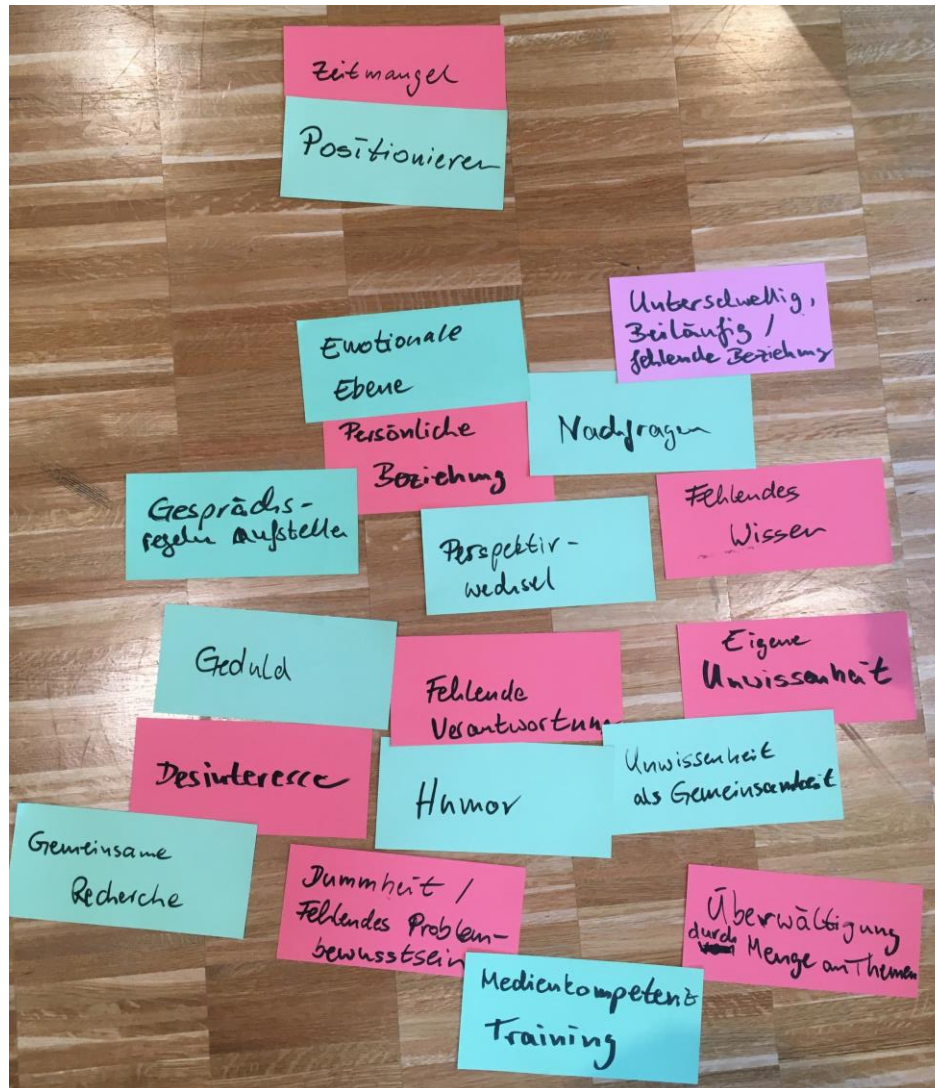 Zeitmangel
Positionieren
Unterschwellig,
Beiläufig /
fehlende Beziehung
Emotionale
Ebene
Nachfragen
Persönliche
Beziehung
Gesprächs-
regeln Aufstellen
Perspektiv-
wechsel
Fehlendes
Wissen
Geduld
Fehlende
Verantwortung
Eigene
Unwissenheit
Desinteresse
Humor
Unwissenheit
als Gemeinsamkeit
Gemeinsame
Recherche
Dummheit /
Fehlendes Problem-
bewusstsein
Überwältigung
durch Menge an Themen
Medienkompetenz
Training